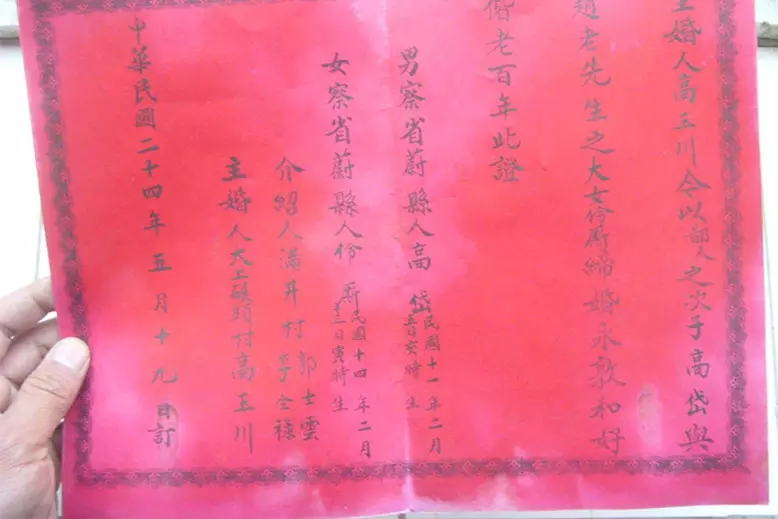 主婚人高玉川今以鄙人之次子高岱與
趙老先生之大女伶斯締婚永敦和好
偕老百年此證
男察省蔚縣人高岱民國十一年二月
日亥時生
女察省蔚縣人伶斯民國十四年二月
日寅時生
介紹人滿井村郭士雲
李全祿
主婚人大上碾頭村高玉川
中華民國二十四年五月十九日訂